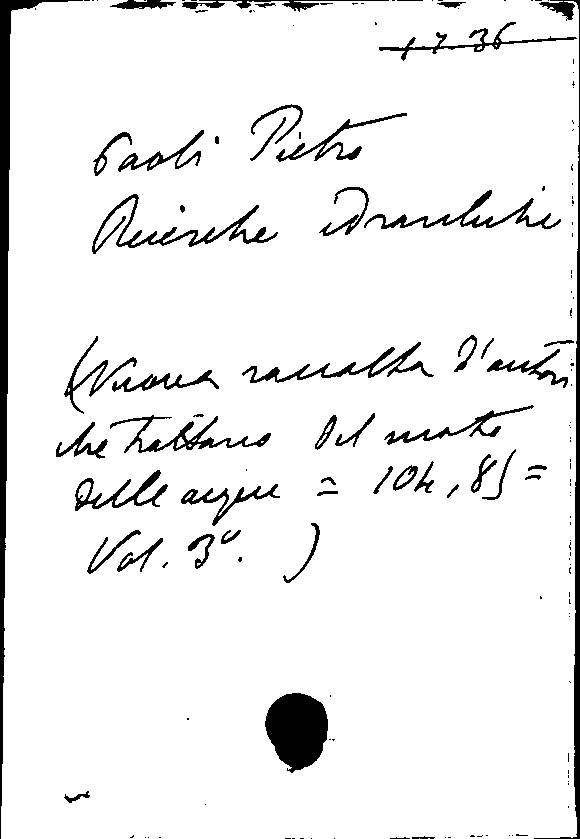 17.36
Paoli Pietro
Ricerche idrauliche
(Nuova raccolta d'autori
che trattano del moto
delle acque = 104,85 =
Vol. 3º. )